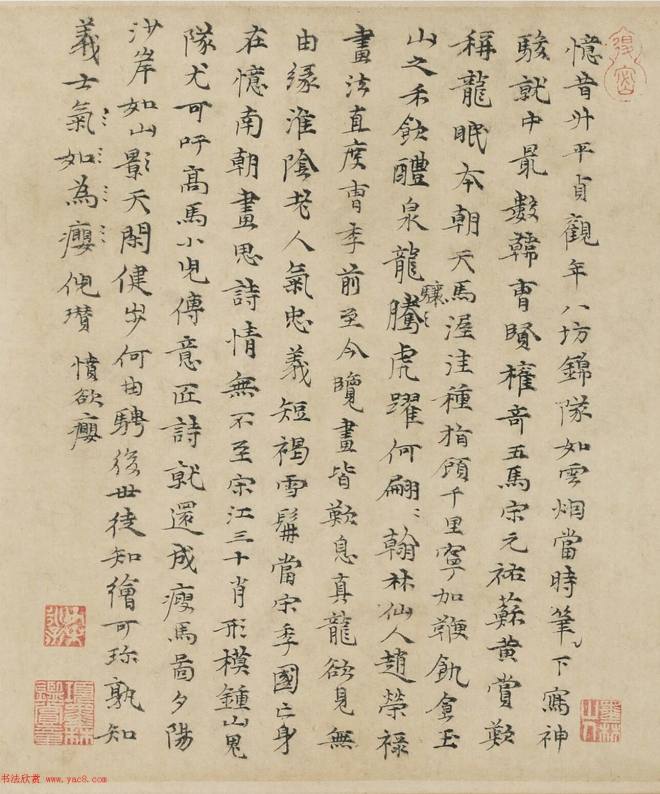 憶昔升平貞觀年八坊錦隊如雲烟當時筆下寫神
駿就中最數韓曹賢權奇五馬宋元祐蘇黃賞歎
稱龍眠本朝天馬渥洼種指顧千里寧加鞭飢食玉
山之禾飲醴泉龍騰虎躍何翩〻翰林仙人趙榮祿
驤〻
畫法直度曹季前至今覽畫皆歎息真龍欲見無
由緣淮陰老人氣忠義短褐雪髯當宋季國亡身
在憶南朝畫思詩情無不至宋江三十肖形模鍾山鬼
隊尤可吁高馬小兒傳意匠詩就還成瘦馬圖夕陽
沙岸如山影天閑健步何由騁後世徒知繪可珍孰知
義士氣如為癭俺瓚 憤欲癭
書法欣賞 www.yac8.com